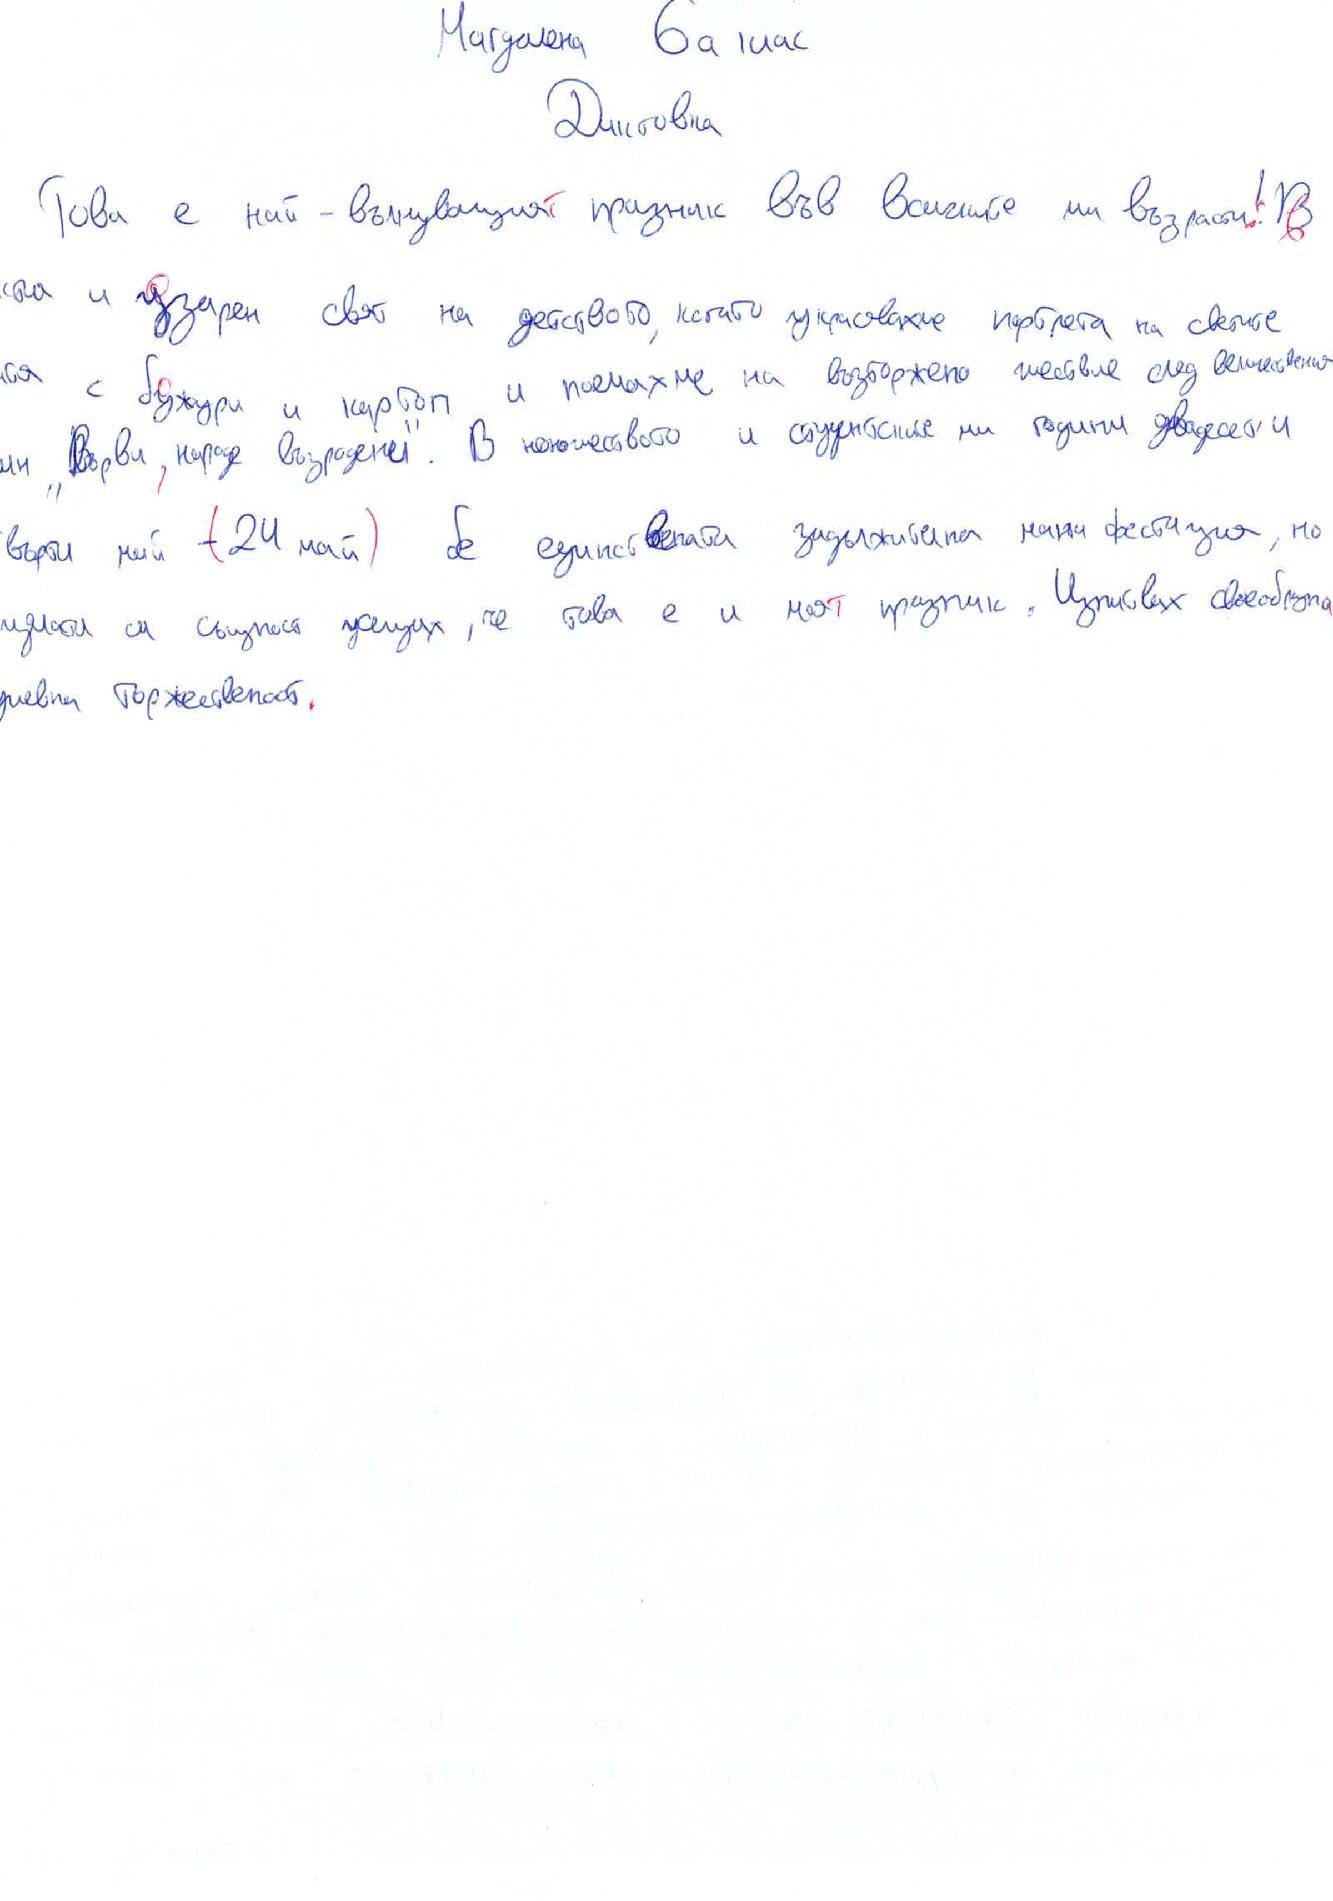 Магдалена 6а клас
Диктовка
Това е най-вълнуващият празник във всичките ми възрасти! В
и озарен свят на детството, когато украсявахме портрета на светите
с божури и картоп и поемахме на възторжено шествие след величествения
„Върви, народе възродени". В юношеството и студентските ми години двадесет и
май (24 май) бе единствената задължителна манифестация, но
си същност усещах, че това е и моят празник. Изпитвах своеобразна
тържественост.